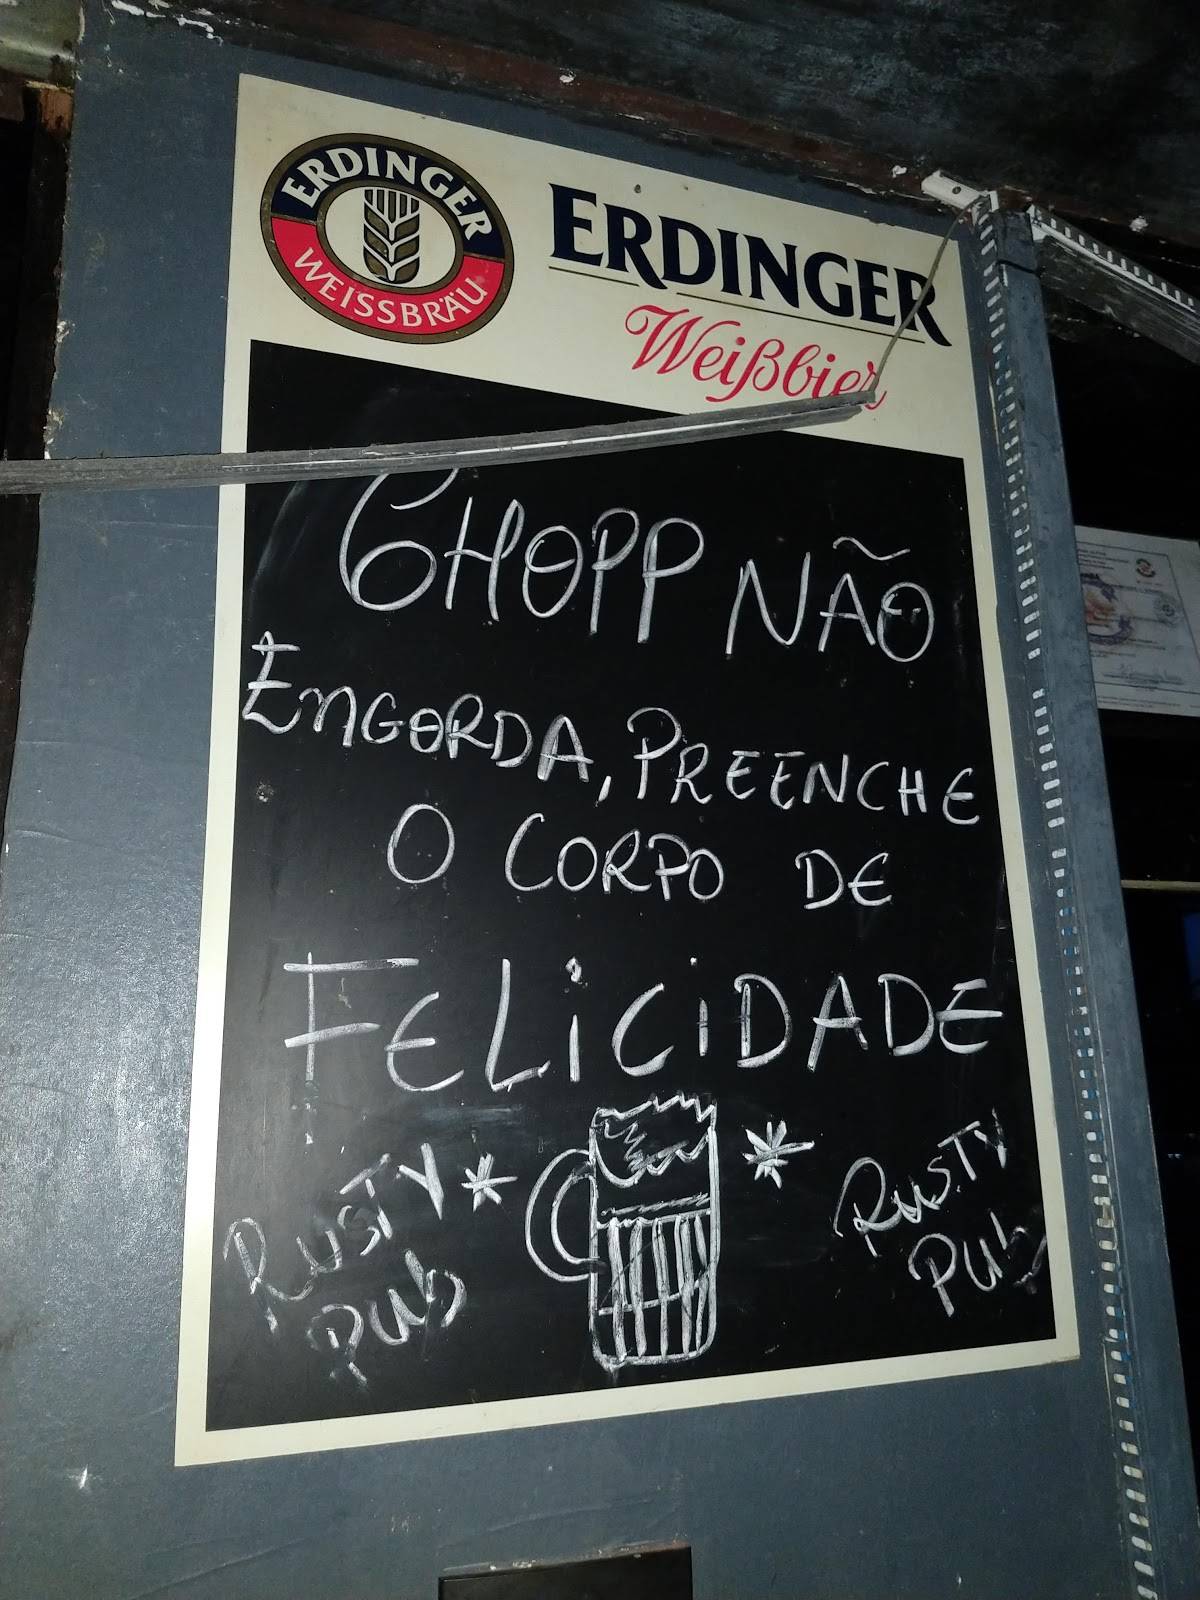 ERDINGER
WEISSBRÄU
ERDINGER
Weißbier
CHOPP NÃO
ENGORDA, PREENCHE
O CORPO DE
FELiCiDADE
RUSTY
PUb
RUSTY
PUb